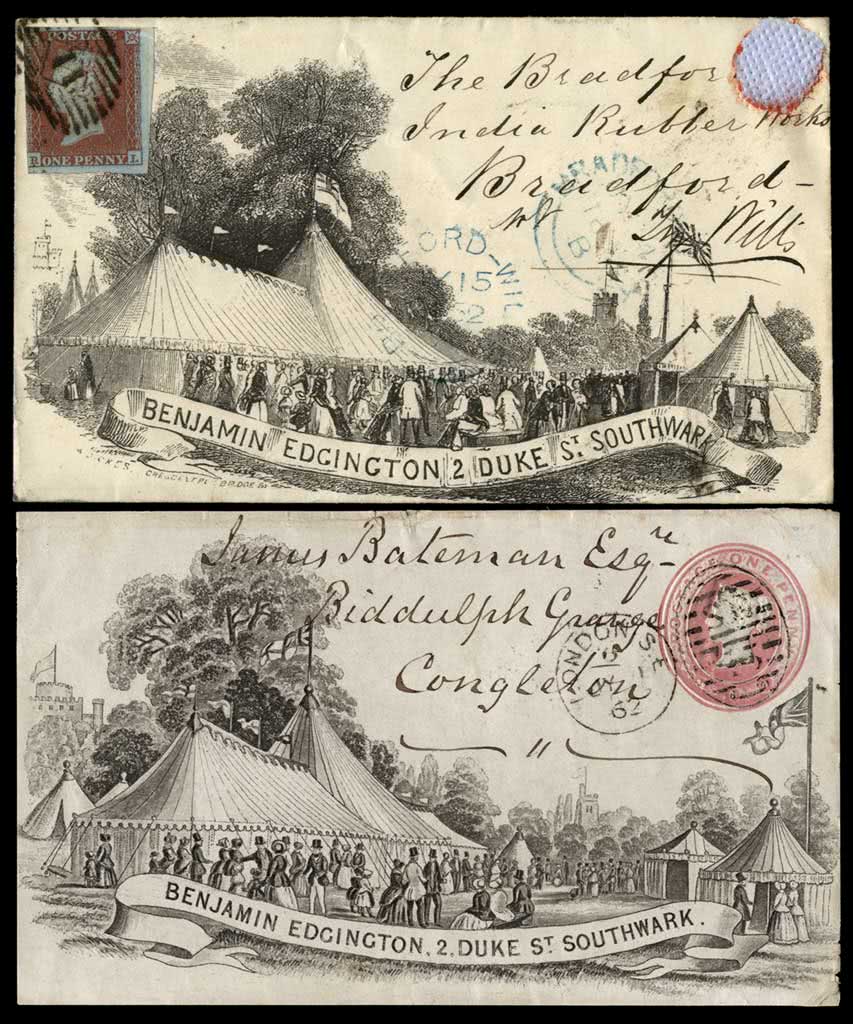 POSTAGE
ONE PENNY
R L
The Bradfor
India Rubber Works
Bradford -
Wilts
BRADFORD-WIL
15
BENJAMIN EDGINGTON 2 DUKE ST. SOUTHWARK
BRIDGE
James Bateman Esqre
Biddulph Grange
Congleton
"
POSTAGE ONE PENNY
LONDON S.E
62
BENJAMIN EDGINGTON, 2, DUKE ST. SOUTHWARK.